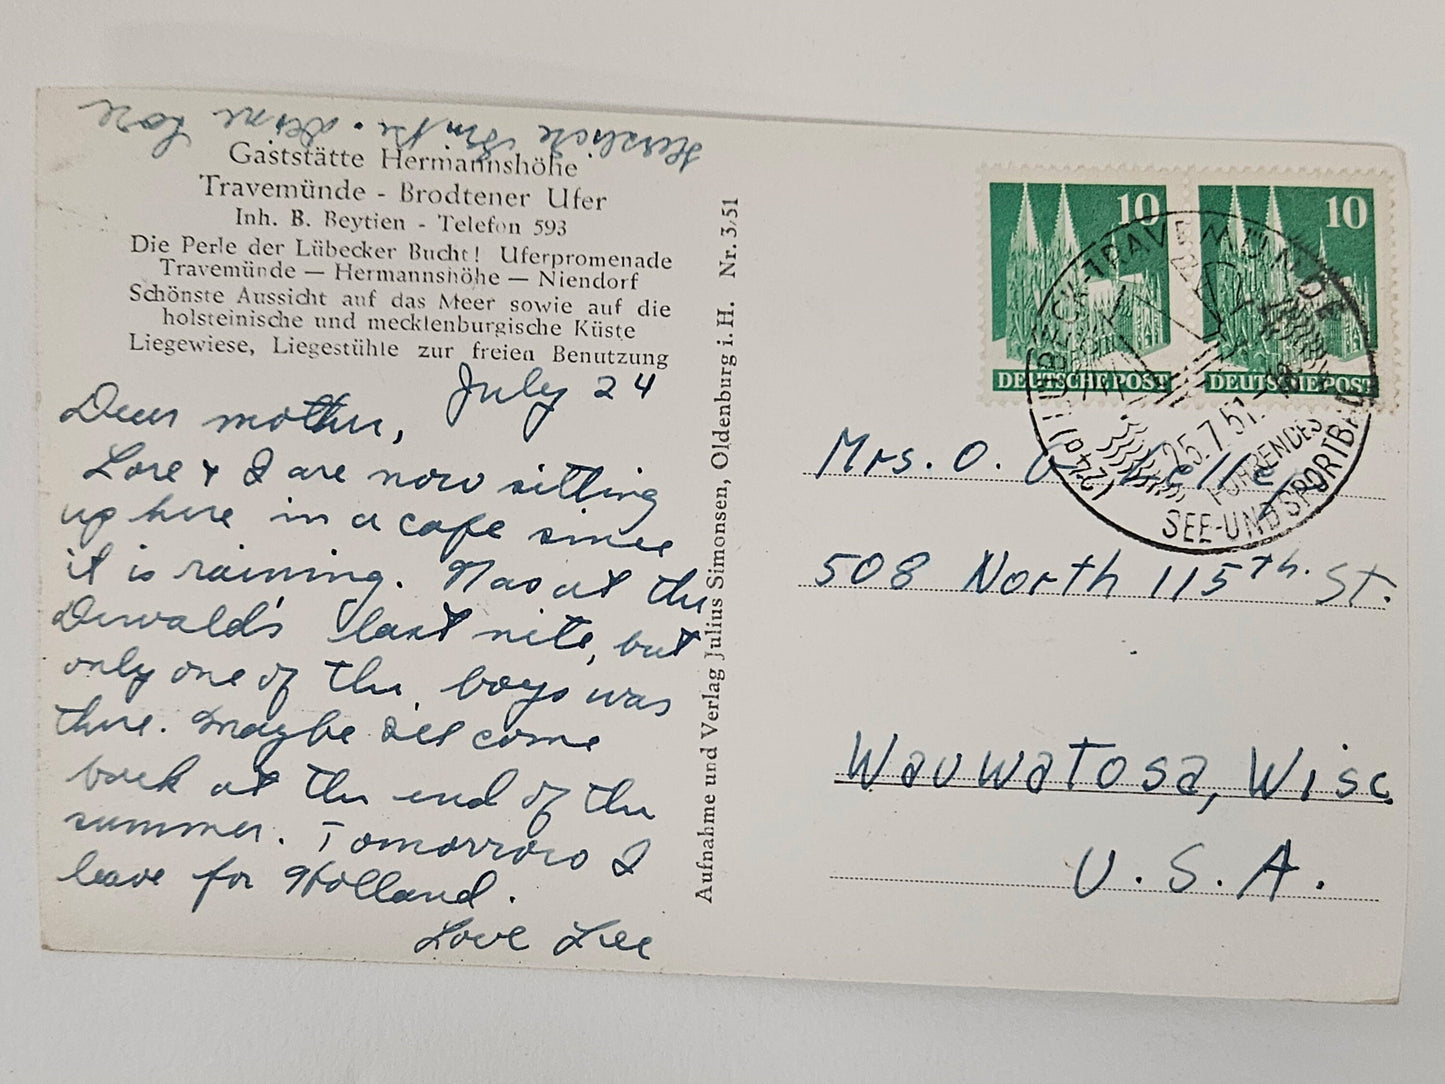 Herzliche Grüße. Deine Lore
Gaststätte Hermannshöhe
Travemünde - Brodtener Ufer
Inh. B. Beytien - Telefon 593
Die Perle der Lübecker Bucht! Uferpromenade
Travemünde — Hermannshöhe — Niendorf
Schönste Aussicht auf das Meer sowie auf die
holsteinische und mecklenburgische Küste
Liegewiese, Liegestühle zur freien Benutzung
July 24
Dear mother,
Lore & I are now sitting
up here in a cafe since
it is raining. Was at the
last nite, but
only one of the boys was
there. Maybe I'll come
back at the end of the
summer. Tomorrow I
leave for Holland.
Love Lee
Aufnahme und Verlag Julius Simonsen, Oldenburg i. H. Nr. 3/51
10
DEUTSCHE POST
10
DEUTSCHE POST
(24a) LÜBECK-TRAVEMÜNDE
25.7.51
FÜHRENDES
SEE-UND SPORTBAD
Mrs. O.
508 North 115th. St.
Wauwatosa, Wisc
U. S. A.